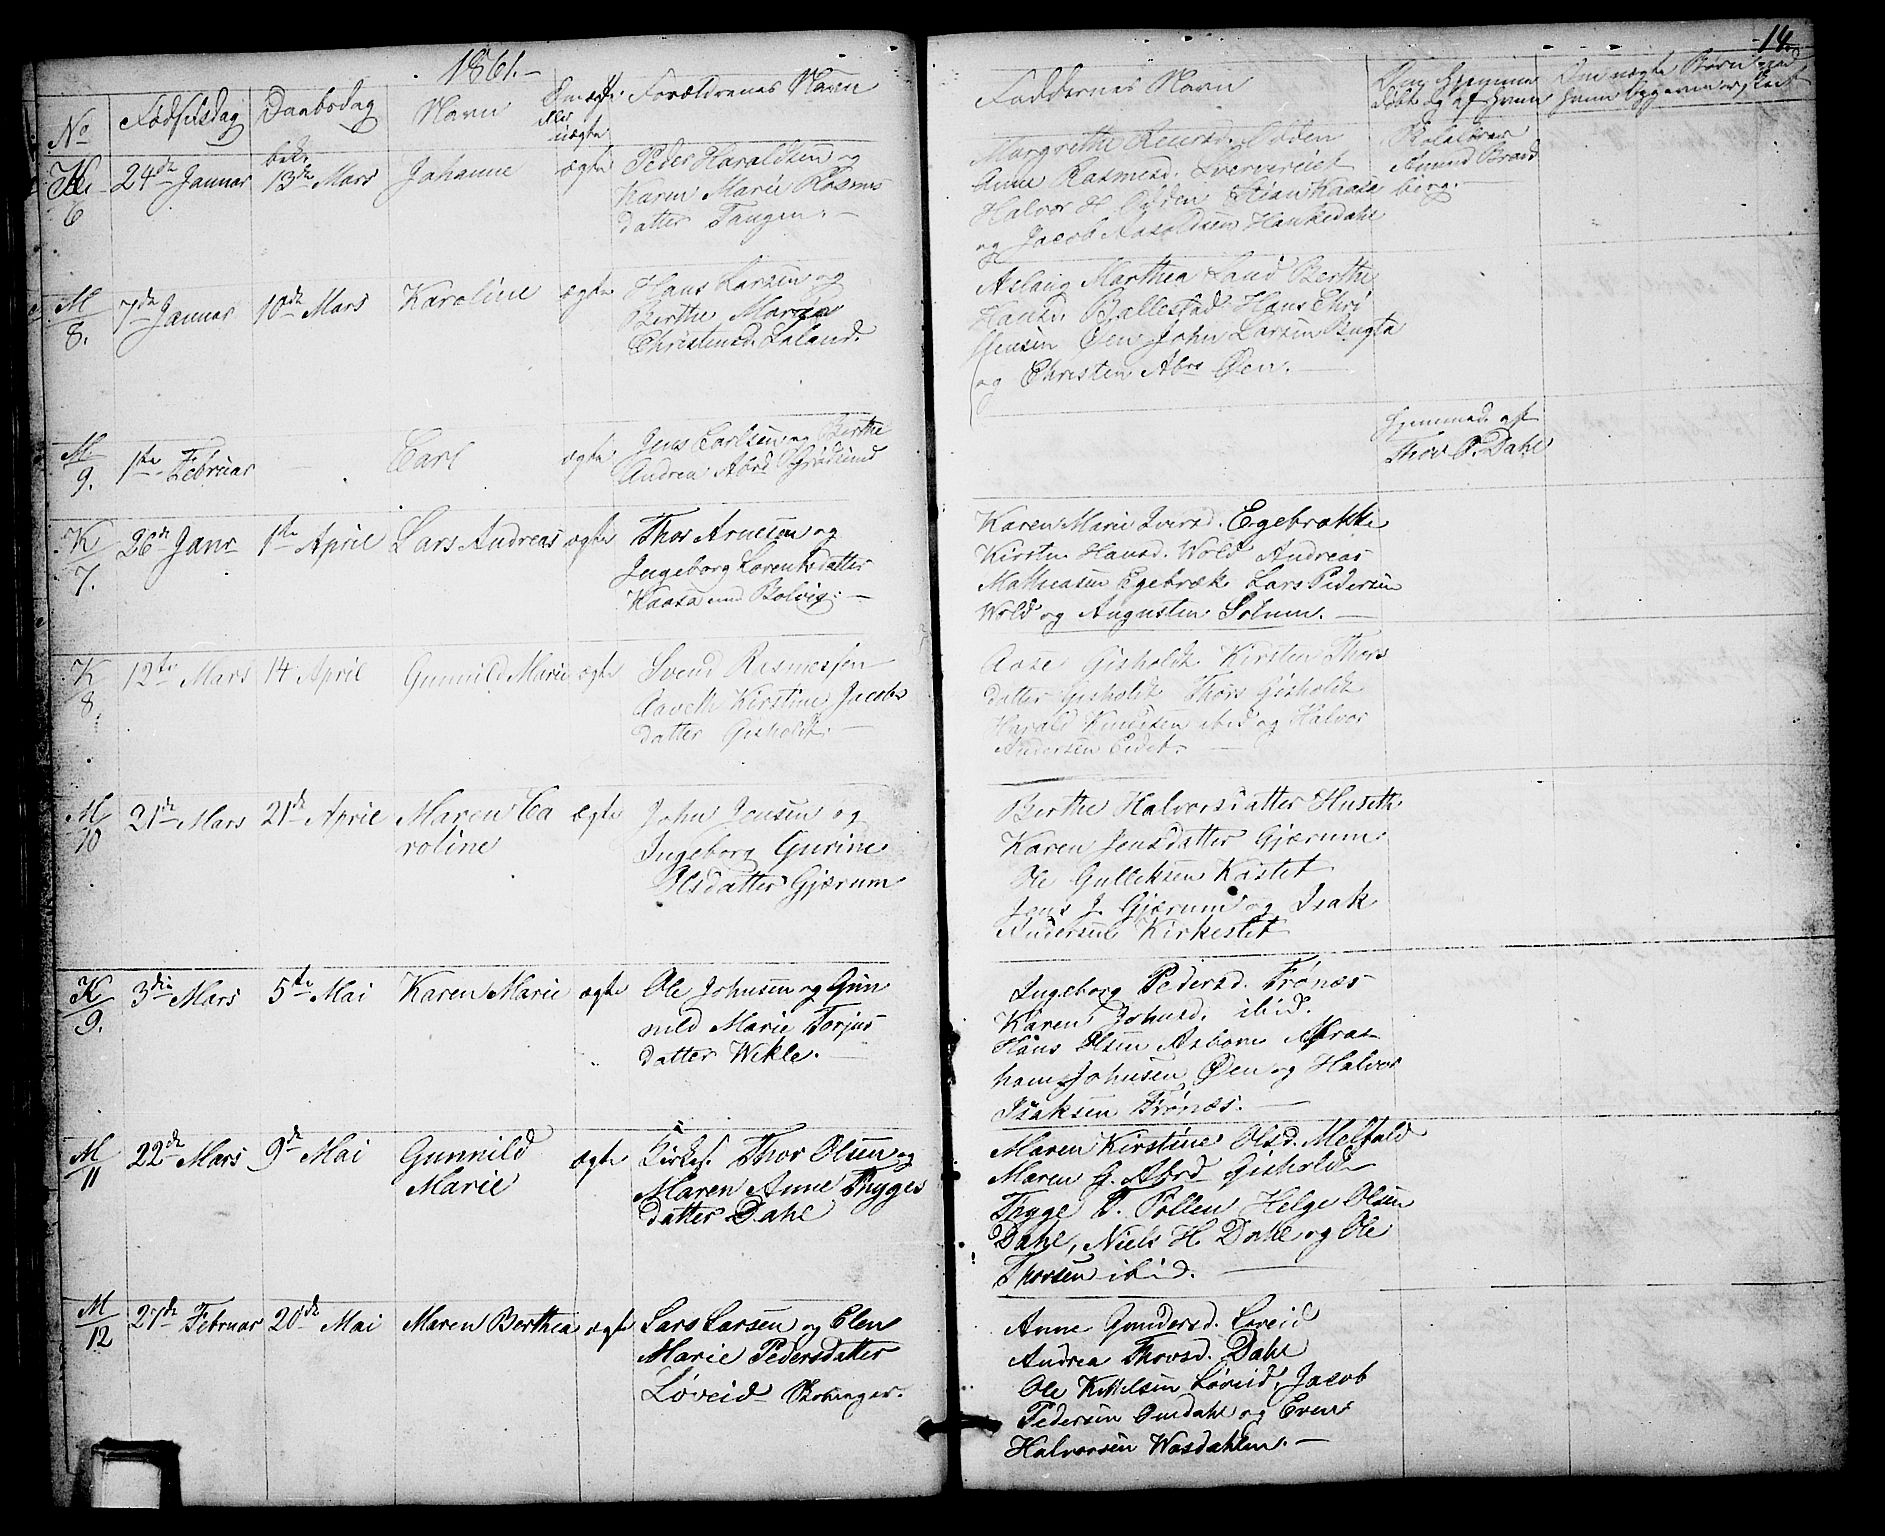 1861.
14.
No
Fødselsdag
Daabsdag
Navn
Om ægte eller uægte
Forældrenes Navn
Faddernes Navn
6
24de Januar
13de Mars
Johanne
ægte
Peder Haraldsen og
Karen Marie Rasmus
datter Tangen.
Anne Rasmusd.
og Jacob
Amund Brand
berg.
M
8.
7de Januar
10de Mars
Karoline
ægte
Hans Larsen og
Berthe Maria
Christensd. Laland.
Aslaug Marthea Sand Berthe
Hansd. Ballestad Hans Chri
stensen Øen John Larsen Bugta
og Christen Abrs Øen.
M
9.
1ste Februar
Carl
ægte
Jens Carlsen og Berthe
Andrea Abrsd
Hjemmed. af
Thov P. Dahl
K
7.
26de Janr
1ste April
Lars Andreas
ægte
Thor Arnesen og
Ingeborg Lorentsdatter
Kaasa und Bolvig.
Karen Marie Iversd. Egebrække
Kirsten Hansd. Wold Andreas
Mathiasen Egebræk Lars Pedersen
Wold og Augusten Solum.
K
8.
12te Mars
14 April
Gunnild Marie
ægte
Svend Rasmessen
Kirstine Jacobs
datter Gisholdt.
Aase Gisholdt Kirsten Thors
datter Gisholdt Thors Gisholdt
Harald Knudsen ibid og Halvor
Andersen Eidet.
M
10
21de Mars
21de April
Maren Ca
roline
ægte
John Jensen og
Ingeborg Gurine
Olsdatter Gjærum
Berthe Halvorsdatter Huseth
Karen Jensdatter Gjærum
Ole Gulleksen Kastet
Jens J. Gjærum og Isak
Andersen Kirkestet
K
9.
3die Mars
5te Mai
Karen Marie
ægte
Ole Johnsen og Gun
nild Marie Torjus
datter Wekle.
Ingeborg Pedersd. Frönæs
Karen Johnsd. ibid.
Hans Olsen Aasborn Abra
ham Johnsen Øen og Halvor
Isaksen Frönæs.
M
11
22de Mars
9de Mai
Gunnild
Marie
ægte
Kirkes. Thor Olsen og
Maren Anne Thyges
datter Dahl
Maren Kirstine Olsd. Melfald
Maren G. Abrd Gisholdt
Thyge T. Pollen Helge Olsen
Dahl, Niels H. Dahl og Ole
Thorsen ibid.
M
12
27de Februar
20de Mai
Maren Berthea
ægte
Lars Larsen og Elen
Marie Pedersdatter
Løveid Skotinger.
Anne Gundersd. Løveid
Andrea Thovsd. Dahl
Ole Kittilsen Løveid, Jacob
Pedersen Omdahl og Even
Halvorsen Wasdahlen.